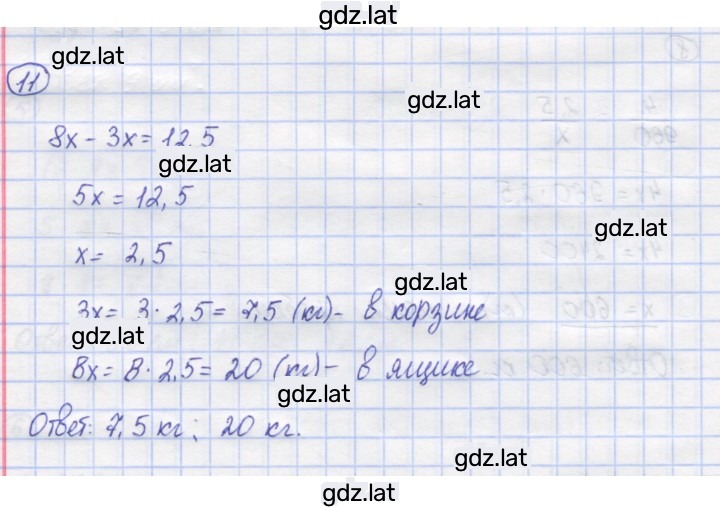 gdz.lat
gdz.lat
11
gdz.lat
8x - 3x = 12,5
gdz.lat
5x = 12,5
gdz.lat
x = 2,5
gdz.lat
3x = 3 · 2,5 = 7,5 (кг) - в корзине
gdz.lat
8x = 8 · 2,5 = 20 (кг) - в ящике
gdz.lat
Ответ: 7,5 кг; 20 кг.
gdz.lat
gdz.lat